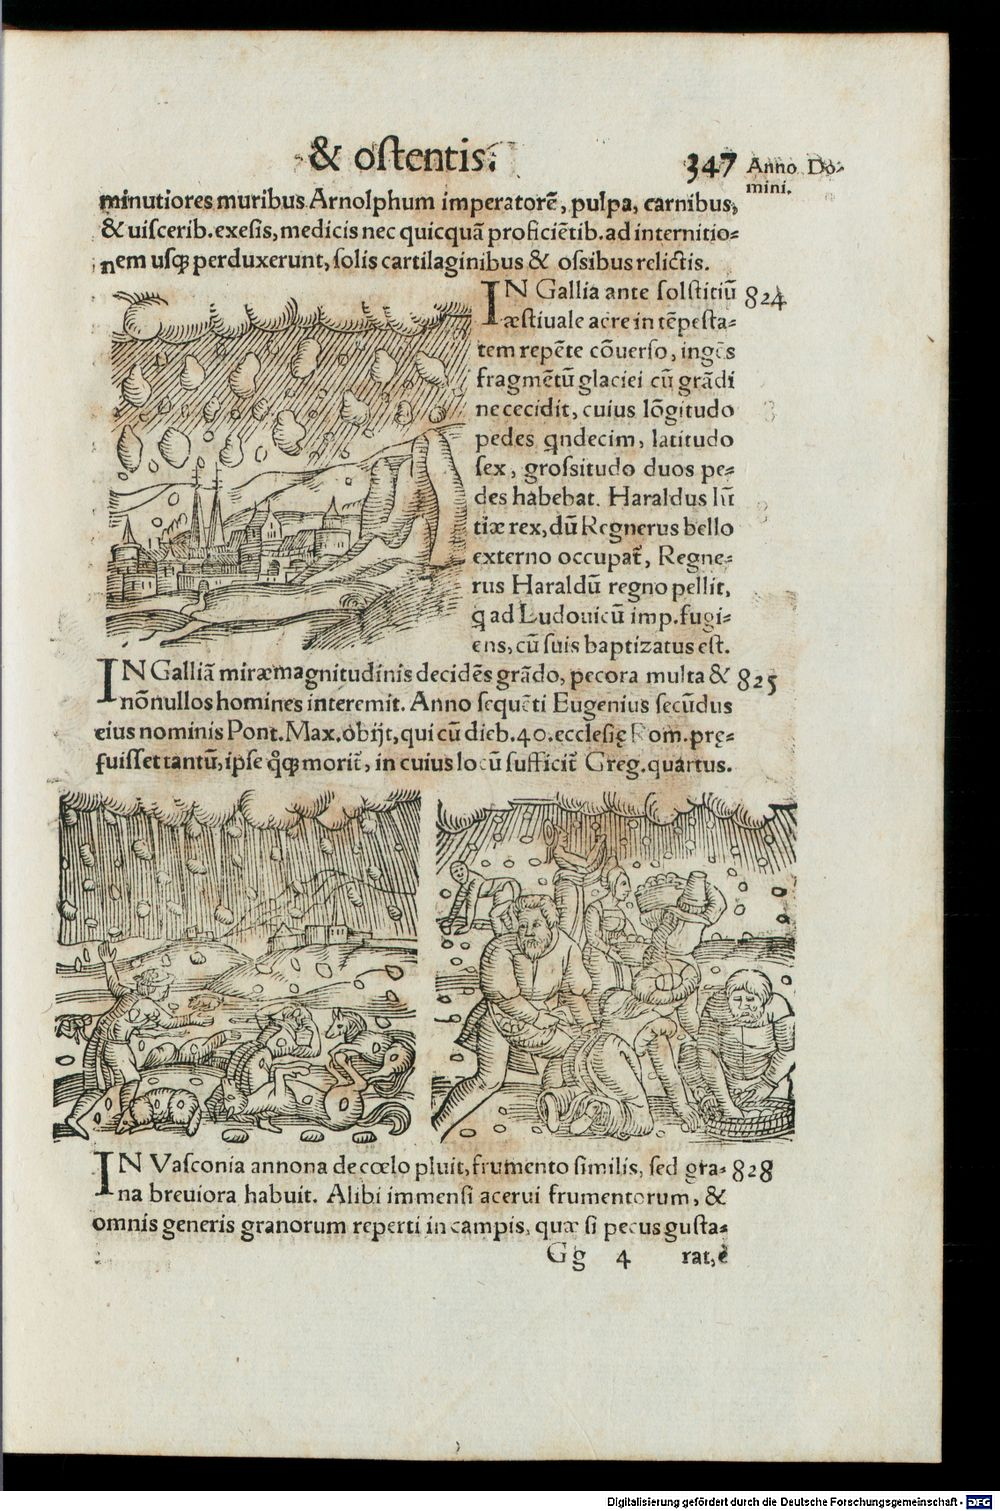 & oſtentis. 347 Anno Do-
mini.
minutiores muribus Arnolphum imperatorē, pulpa, carnibus,
& uiſcerib. exeſis, medicis nec quicquā proficiētib. ad internitio=
nem uſq; perduxerunt, ſolis cartilaginibus & oſsibus relictis.
IN Gallia ante ſolſtitiū 824
æſtiuale aere in tēpeſta=
tem repēte cōuerſo, ingēs
fragmētū glaciei cū grādi
ne cecidit, cuius lōgitudo
pedes qndecim, latitudo
ſex, groſsitudo duos pe=
des habebat. Haraldus Iū
tiæ rex, dū Regnerus bello
externo occupat̃, Regne=
rus Haraldū regno pellit,
q ad Ludouicū imp. fugi=
ens, cū ſuis baptizatus eſt.
IN Galliā miræ magnitudinis decidēs grādo, pecora multa & 825
nōnullos homines interemit. Anno ſequēti Eugenius ſecūdus
eius nominis Pont. Max. obijt, qui cū dieb. 40. eccleſię Rom. prę=
fuiſſet tantū, ipſe q̊q; morit̃, in cuius locū ſufficit̃ Greg. quartus.
IN Vaſconia annona de cœlo pluit, frumento ſimilis, ſed gra= 828
na breuiora habuit. Alibi immenſi acerui frumentorum, &
omnis generis granorum reperti in campis, quæ ſi pecus guſta=
Gg 4 rat, è
Digitalisierung gefördert durch die Deutsche Forschungsgemeinschaft - DFG